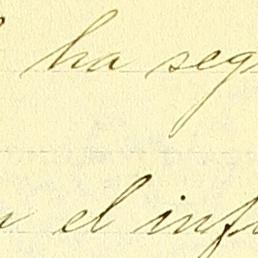 ha seg
el inf